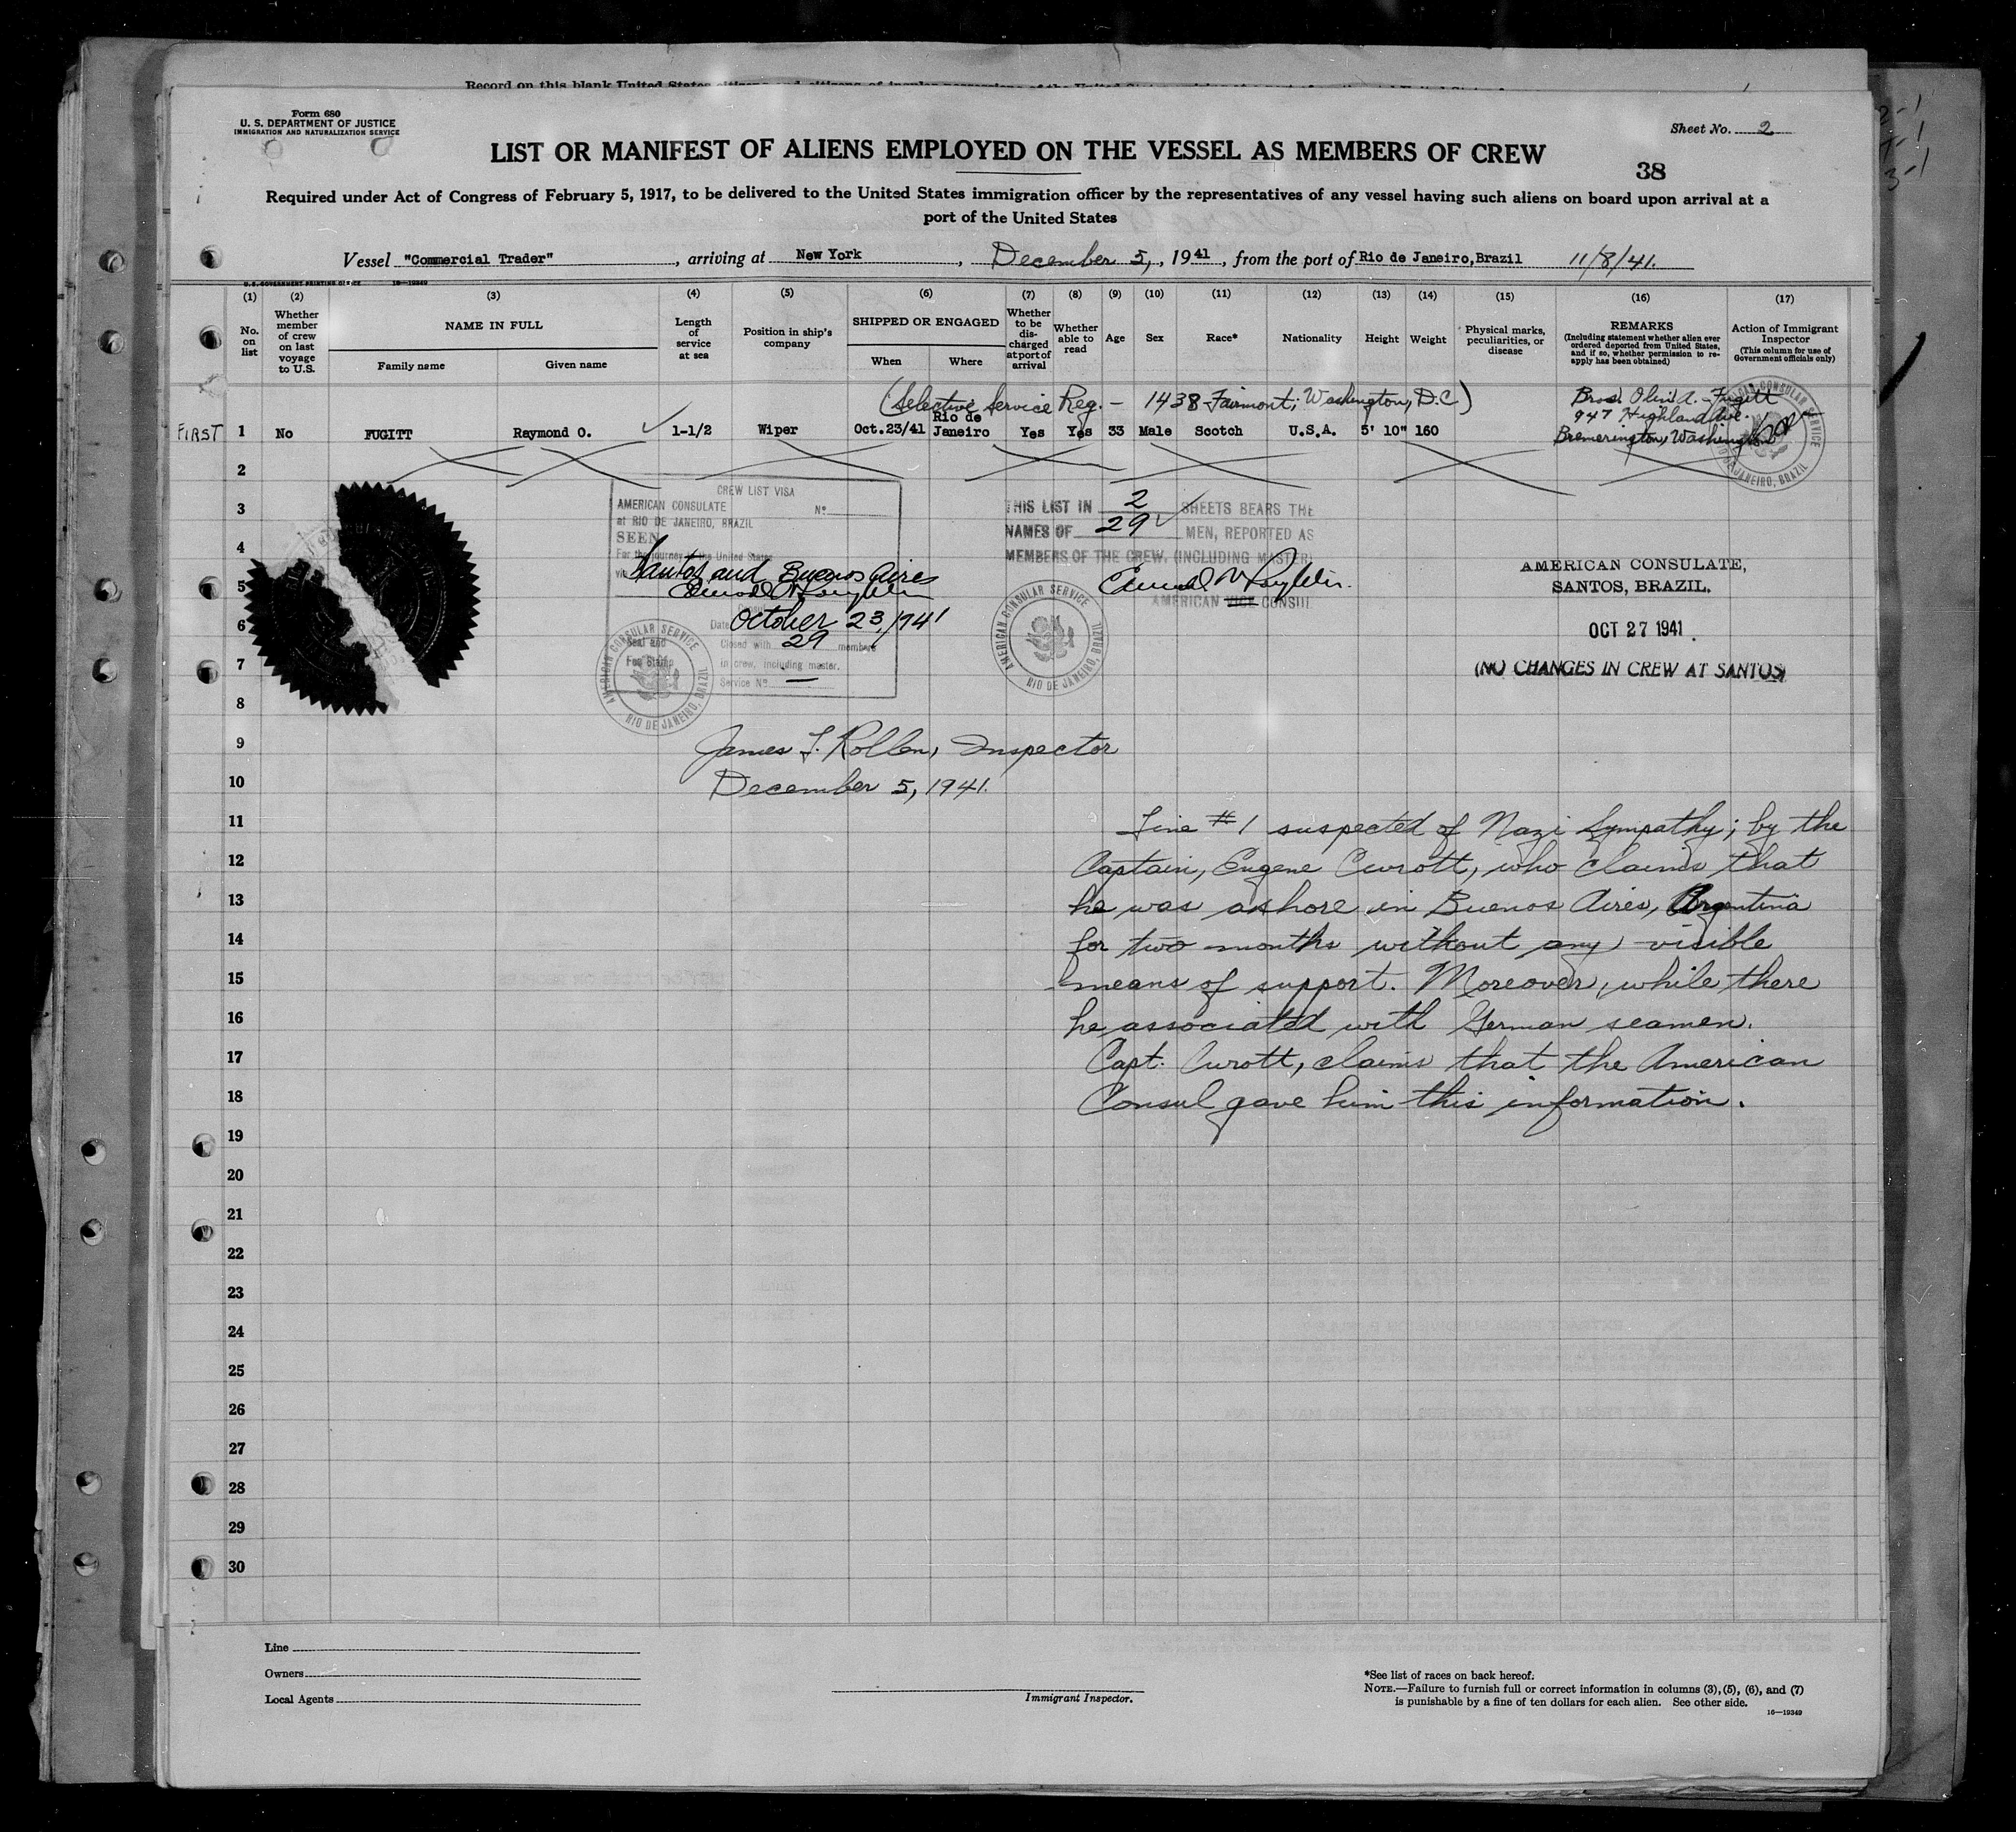 Form 680
U. S. DEPARTMENT OF JUSTICE
IMMIGRATION AND NATURALIZATION SERVICE
Sheet No. 2
LIST OR MANIFEST OF ALIENS EMPLOYED ON THE VESSEL AS MEMBERS OF CREW
38
Required under Act of Congress of February 5, 1917, to be delivered to the United States immigration officer by the representatives of any vessel having such aliens on board upon arrival at a
port of the United States
Vessel "Commercial Trader", arriving at New York, December 5, 1941, from the port of Rio de Janeiro, Brazil 11/8/41.
U.S. GOVERNMENT PRINTING OFFICE 16—19349
(1) (2) (3) (4) (5) (6) (7) (8) (9) (10) (11) (12) (13) (14) (15) (16) (17)
No. on list
Whether member of crew on last voyage to U.S.
NAME IN FULL
Family name
Given name
Length of service at sea
Position in ship's company
SHIPPED OR ENGAGED
When
Where
Whether to be discharged at port of arrival
Whether able to read
Age
Sex
Race*
Nationality
Height
Weight
Physical marks, peculiarities, or disease
REMARKS
(Including statement whether alien ever ordered deported from United States, and if so, whether permission to reapply has been obtained)
Action of Immigrant Inspector
(This column for use of Government officials only)
(Selective Service Reg. - 1438 Fairmont; Washington, D.C.)
FIRST 1 No FUGITT Raymond O. 1-1/2 Wiper Oct.23/41 Rio de Janeiro Yes Yes 33 Male Scotch U.S.A. 5' 10" 160
Fugitt
947 Highland Ave.
Bremerington, Washington
2
3
4
5
6
7
8
9
10
11
12
13
14
15
16
17
18
19
20
21
22
23
24
25
26
27
28
29
30
CREW LIST VISA
AMERICAN CONSULATE No
at RIO DE JANEIRO, BRAZIL
SEEN
For the journey to the United States
via Santos and Buenos Aires
Date October 23, 1941
Closed with 29 members
in crew, including master.
Service No. —
Seal and
Fee Stamp
AMERICAN CONSULAR SERVICE
RIO DE JANEIRO, BRAZIL
THIS LIST IN 2 SHEETS BEARS THE
NAMES OF 29 MEN, REPORTED AS
MEMBERS OF THE CREW. (INCLUDING MASTER)
AMERICAN VICE CONSUL
AMERICAN CONSULAR SERVICE
RIO DE JANEIRO, BRAZIL
AMERICAN CONSULATE,
SANTOS, BRAZIL.
OCT 27 1941
(NO CHANGES IN CREW AT SANTOS)
James Inspector
December 5, 1941.
Line #1 suspected of Nazi Sympathy; by the
Captain, Eugene Curott, who claims that
he was ashore in Buenos Aires, Argentina
for two months without any visible
means of support. Moreover, while there
he associated with German seamen.
Capt. Curott, claims that the American
Consul gave him this information.
Line
Owners
Local Agents
Immigrant Inspector.
*See list of races on back hereof.
NOTE.—Failure to furnish full or correct information in columns (3), (5), (6), and (7)
is punishable by a fine of ten dollars for each alien. See other side.
16—19349